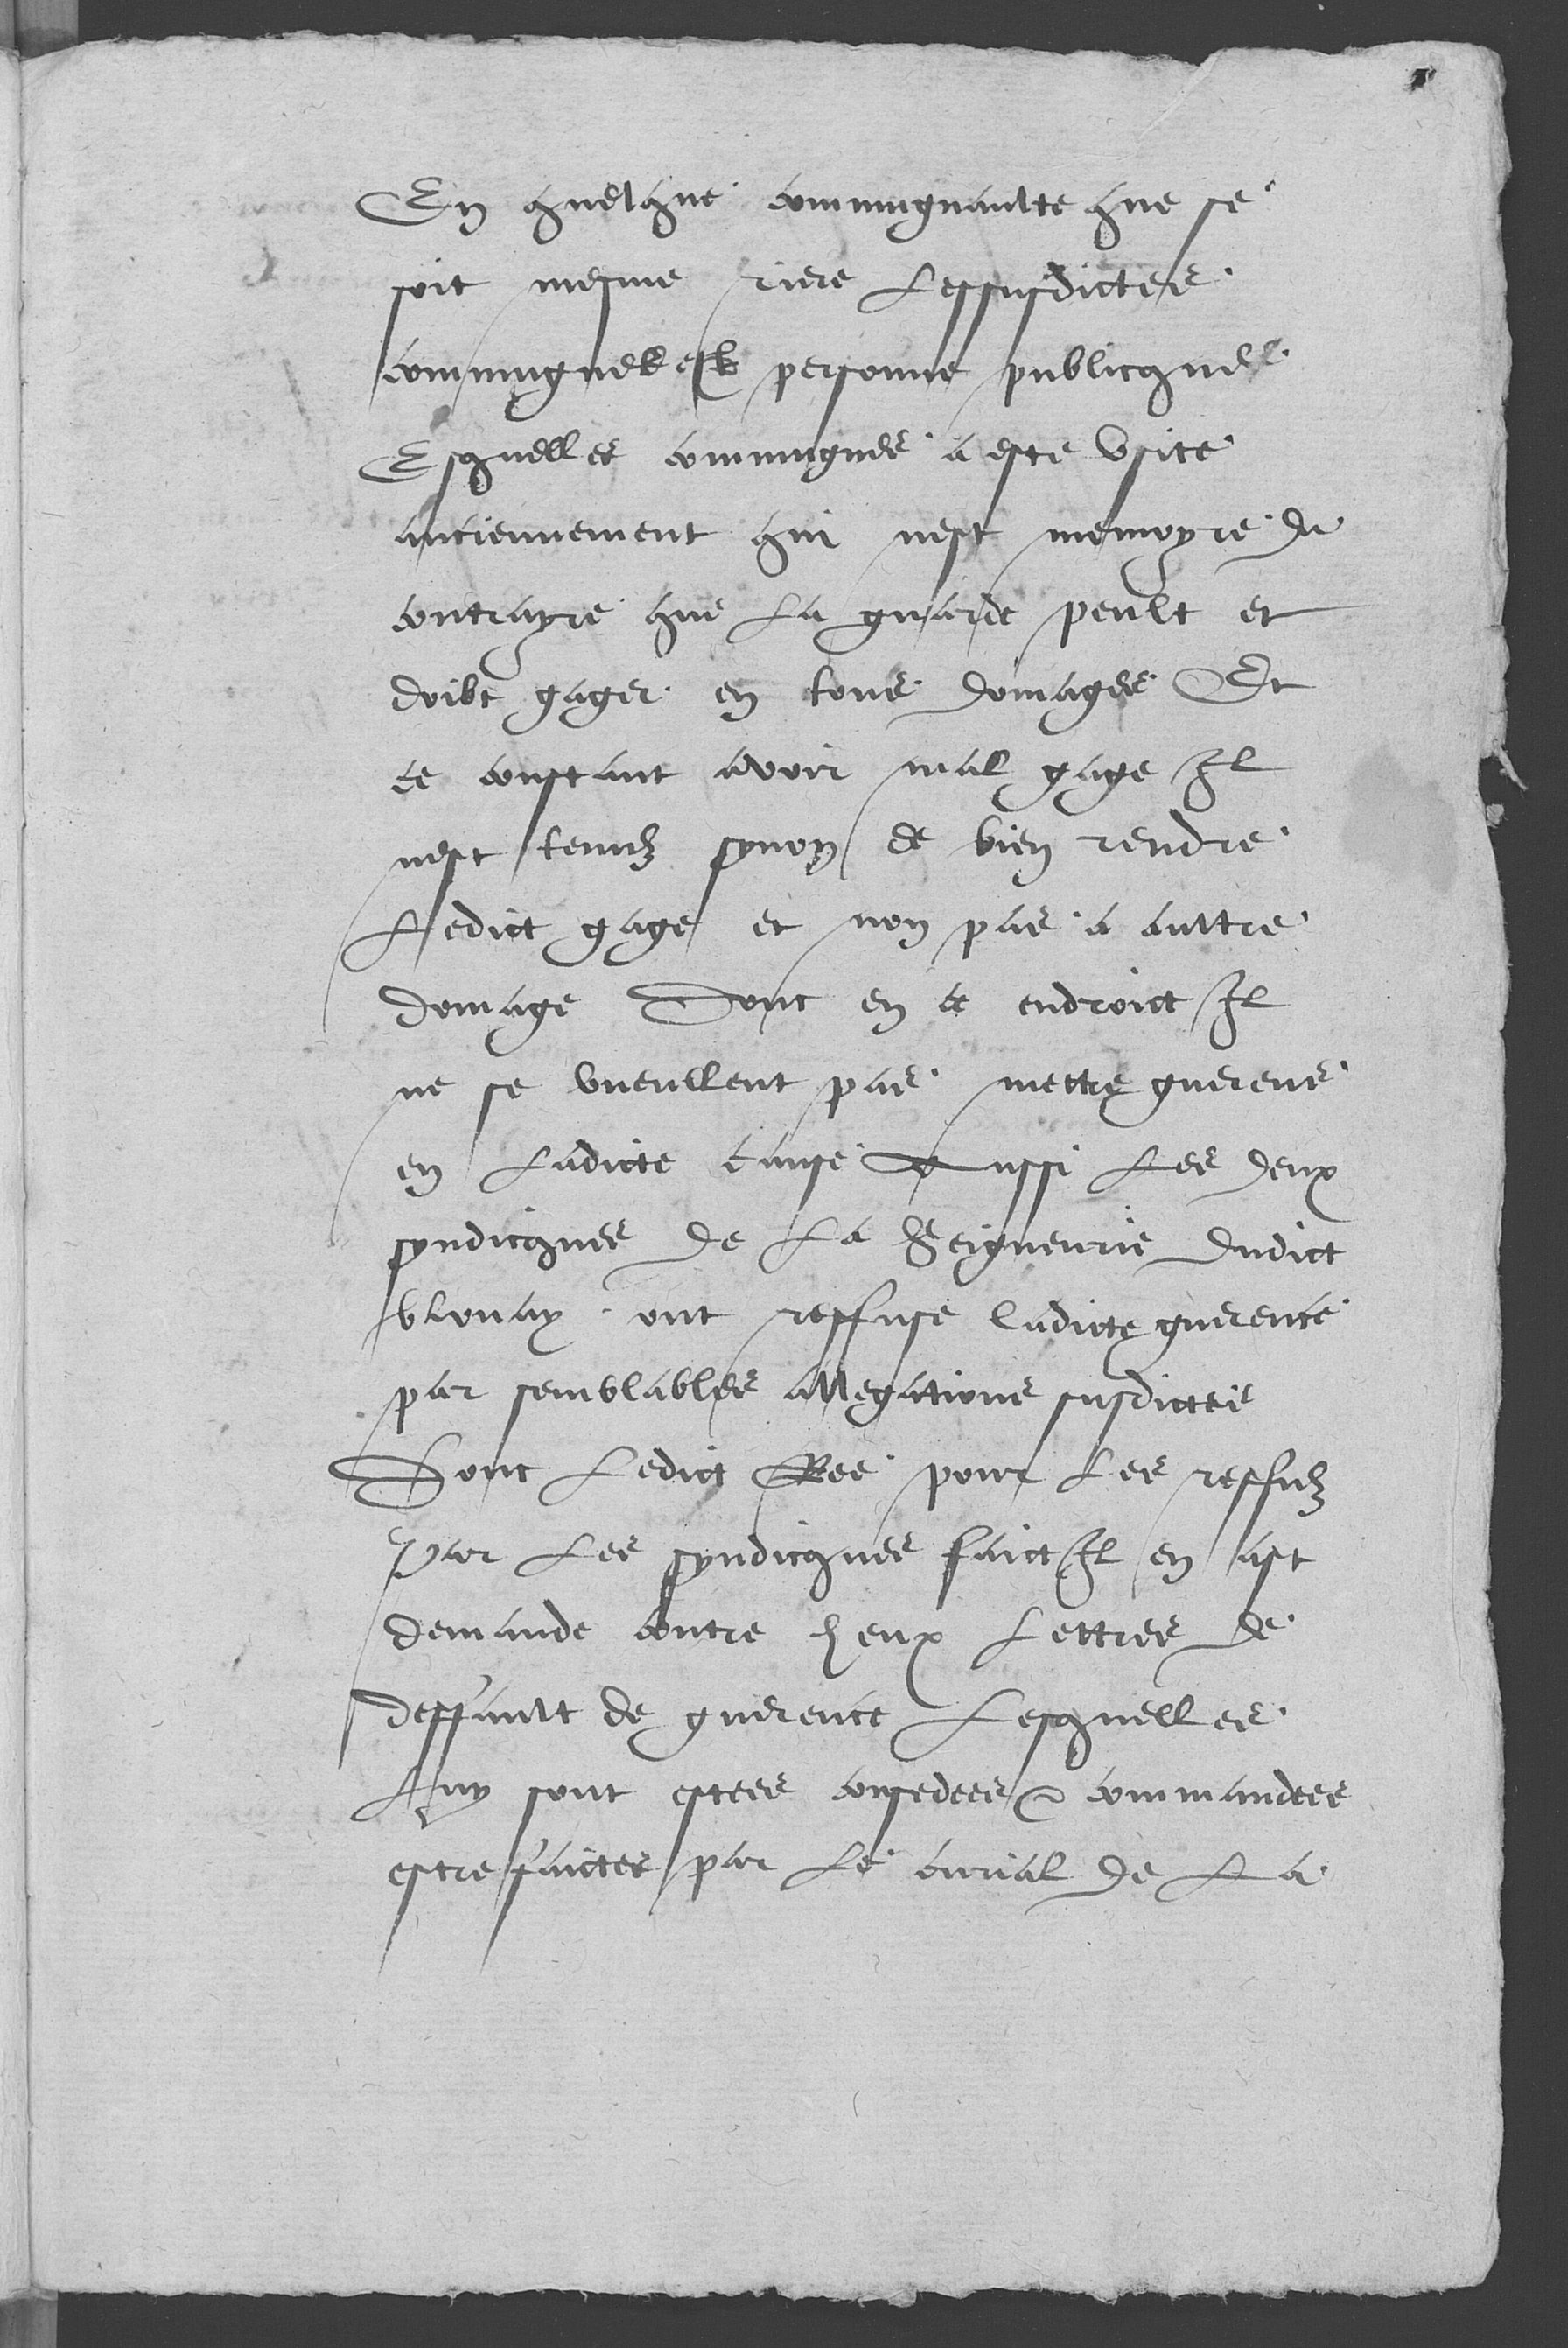 En quelque commugnaulte que se
soit mesme riere Lessusdictes
commugnes est personne publicque
Esquelles commugnes a este vsite
anciennement qui nest memoyre du
contrayre que La guarde peult et
doibt gager en tous domages Et
ce constant avoir mal gage Il
nest tenuz synon de bien rendre
Ledict gage et non pas a aultre
domage Donc en ce endroict Il
ne se vueullent pas mettre guerens
en Ladicte cause Aussi Les deux
syndicques de La Seigneurie dudict
blonay ont reffuse ladicte guerence
par semblables allegations susdictes
Donc Ledict Ree pour Les reffuz
Par Les syndicques faict Il en ast
demande contre heux Lettres de
deffault de guerence Lesquelles
Luy sont estees consedees & commandees
estre faictes par Le curial de La